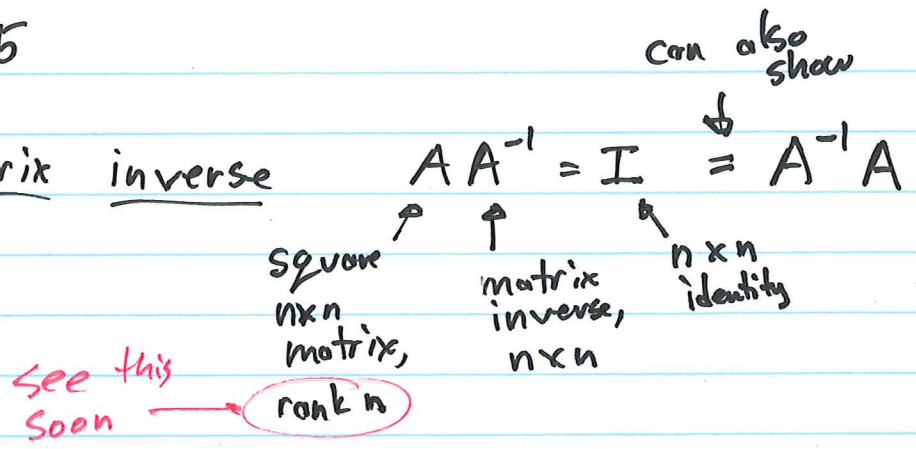 5
can also
show
rix inverse A A⁻¹ = I = A⁻¹ A
square
nxn
matrix,
rank n
matrix
inverse,
nxn
nxn
identity
see this
soon